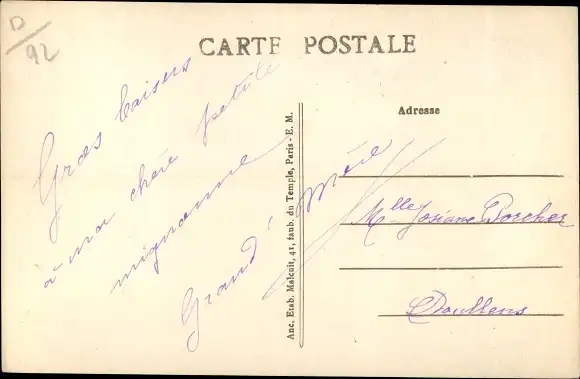 D/92
CARTE POSTALE
Gros baisers
à ma chère petite
mignonne
Grand' mère
Anc. Etab. Malcuit, 41, faub. du Temple, Paris - E. M.
Adresse
Mlle Josiane Porcher
Doullens